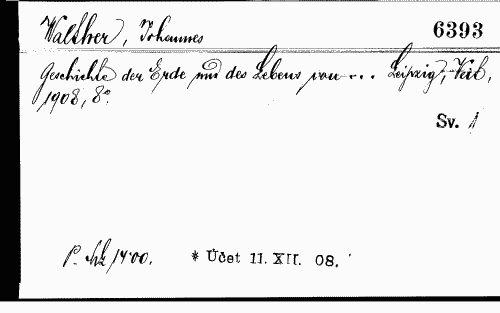 Walther, Johannes
6393
Geschichte der Erde und des Lebens von ... Leipzig, Veit,
1908, 8°.
Sv. 1
P. 1400.
* Účet 11. XII. 08.